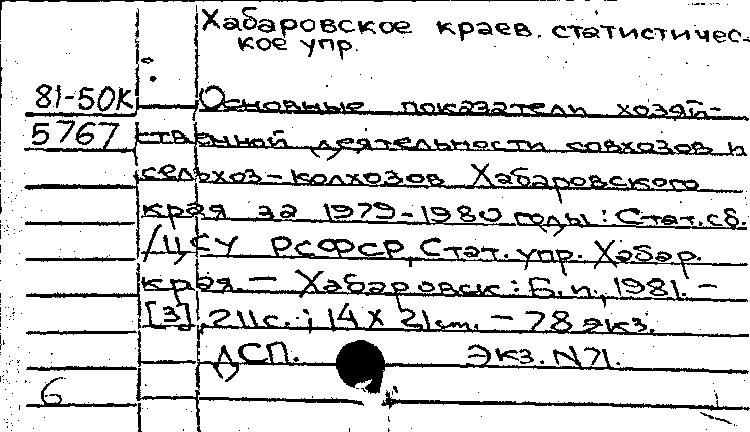 Хабаровское краев. статистичес-
кое упр.
81-50К Основные показатели хозяй-
5767 ственной деятельности совхозов и
сельхоз-колхозов Хабаровского
края за 1979-1980 годы: Стат. сб.
/ЦСУ РСФСР, Стат. упр. Хабар.
края. — Хабаровск: Б.и., 1981. —
[3], 211с.; 14 X 21см. — 78 экз.
ДСП. Экз. N71.
6